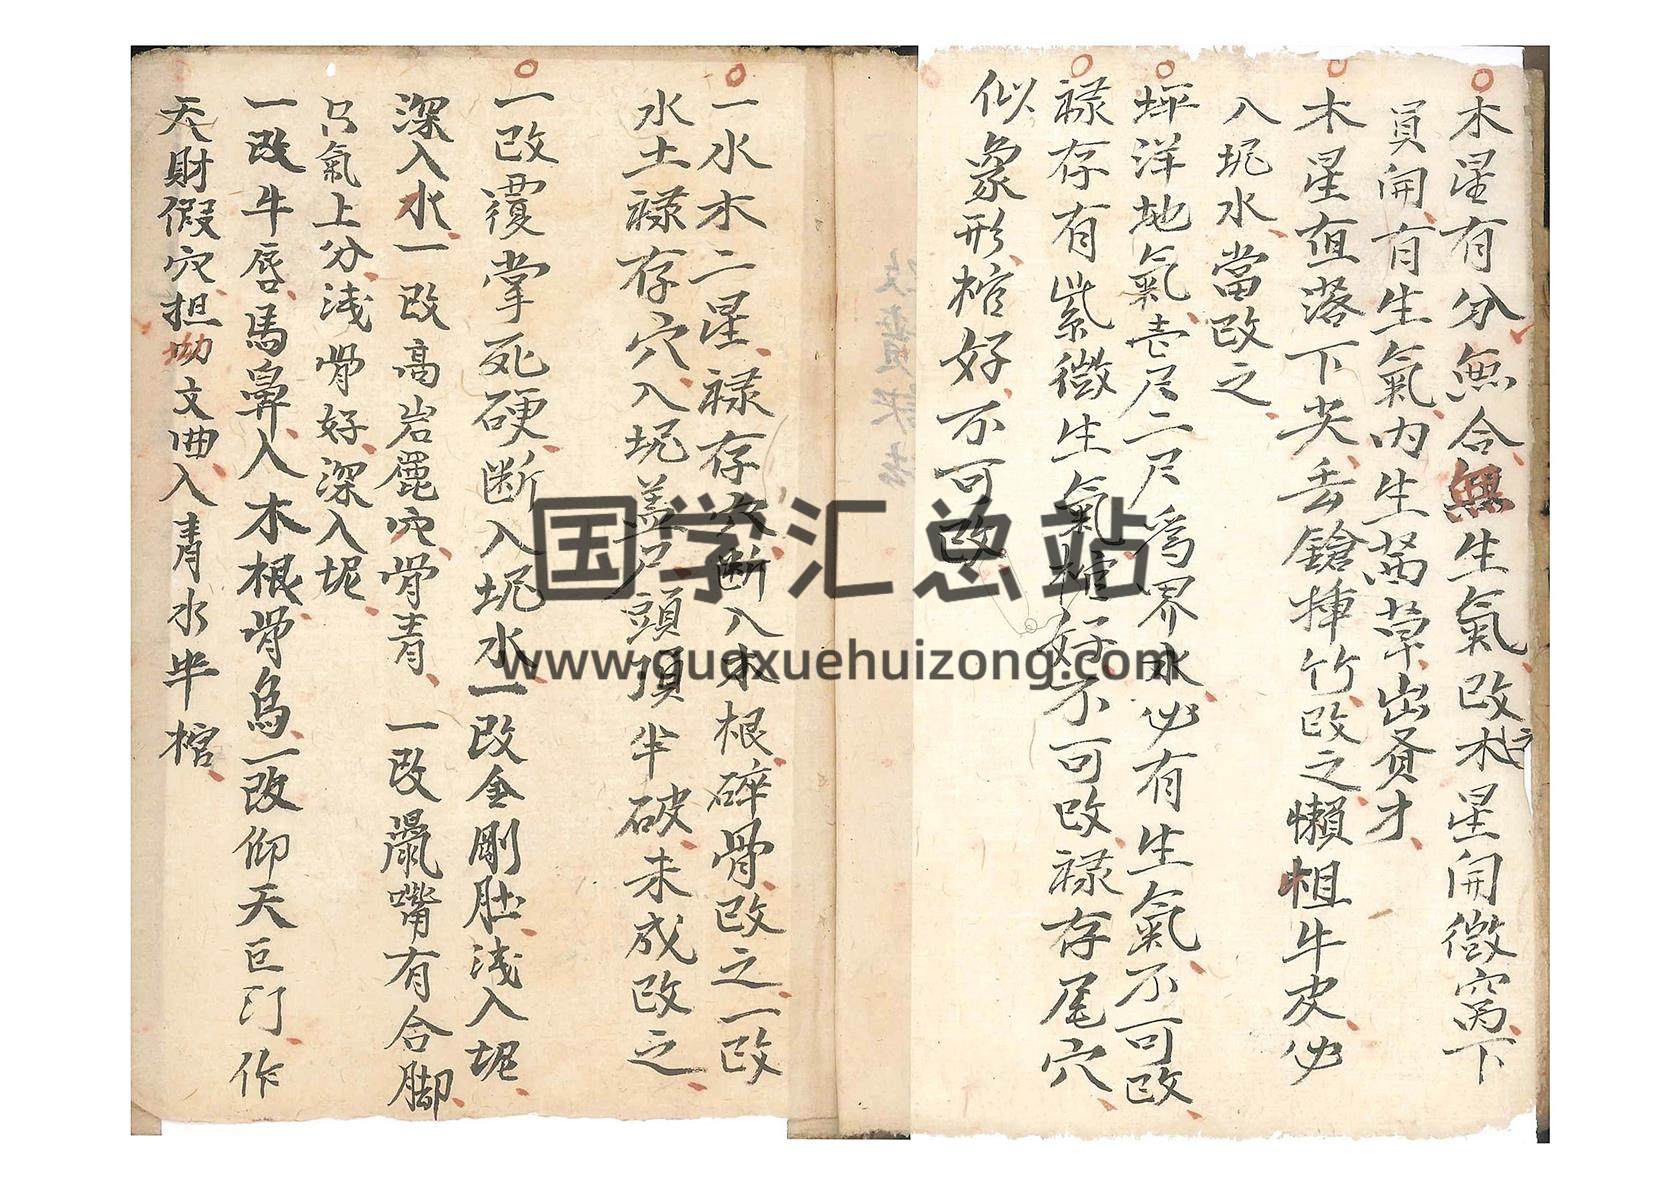 木星有分無合無生氣改木星開微窝下
員開有生氣內生萬草出贤才
木星直落下尖丢鎗挿竹改之懶坦牛皮必
入坭水當改之
坪洋地氣壱尺二尺為界水必有生氣不可改
禄存有紫微生氣棺好不可改禄存尾穴
似象形棺好不可改
一水木二星禄存穴断入木根碎骨改之一改
水土禄存穴入坭盖尸頭頂半破未成改之
一改覆掌死硬断入坭水一改金剛肚浅入坭
深入水一改高岩穴骨青一改鼠嘴有合脚
只氣上分浅骨好深入坭
一改牛唇馬鼻入木根骨烏一改仰天巨汀作
天財假穴担坳文曲入青水半棺
国学汇总站
www.guoxuehuizong.com